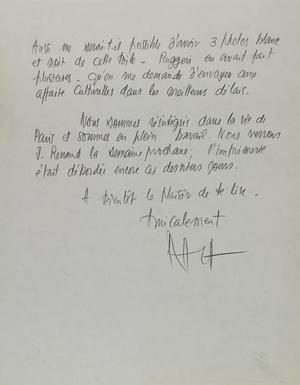 Aussi me serait-il possible d'avoir 3 photos blanc
et noir de cette toile - Ruggeri en avait fait
plusieurs - Qu'on me demande d'envoyer aux
affaires Culturelles dans les meilleurs délais.
Nous sommes réintégrés dans la vie de
Paris et sommes en plein travail. Nous verrons
J. Renaud la semaine prochaine; l'imprimerie
était débordée encore ces derniers jours.
A bientôt le plaisir de te lire -
Amicalement